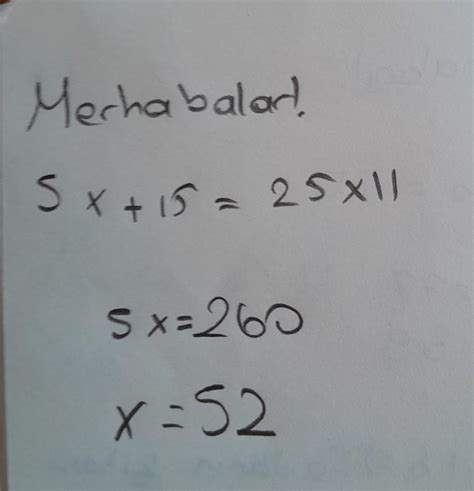 Merhabalar!
5x+15=25x11
5x=260
x=52